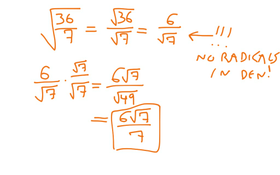 √(36/7) = √36/√7 = 6/√7 ← !!!
...
NO RADICALS
IN DEN!
6/√7 · √7/√7 = 6√7/√49
= 6√7/7